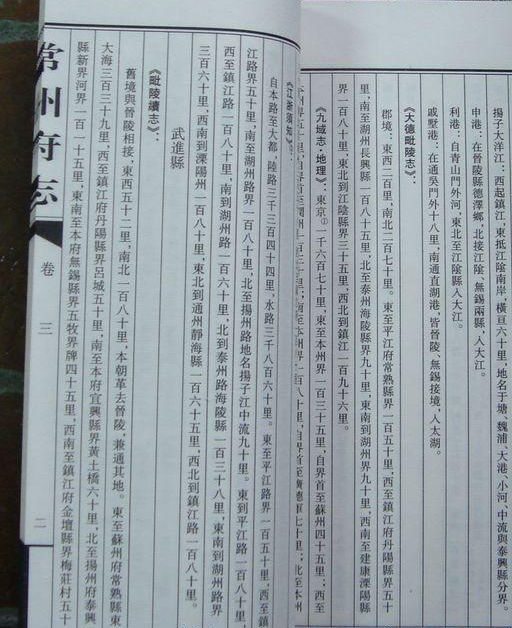 揚子大洋江：西起鎮江，東抵江陰南岸，橫亘六十里，地名于塘、魏浦、大港、小河，中流與泰興縣分界。
申港：在晉陵縣德澤鄉，北接江陰、無錫兩縣，入大江。
利港：自青山門外河，東北至江陰縣入大江。
戚野港：在通吳門外十八里，南通直湖港，皆晉陵、無錫接境，入太湖。
《大德毗陵志》：
郡境：東西二百里，南北二百七十里。東至平江府常熟縣界一百五十里，西至鎮江府丹陽縣界五十
里，南至湖州長興縣一百八十五里，北至泰州海陵縣界九十里，東南到湖州界九十里，西南至建康溧陽縣
界一百八十里，東北到江陰縣界三十五里，西北到鎮江一百九十六里。
《九域志·地理》：東京①一千六百七十里，自界首至蘇州四十五里；西至
《江浙須知》：
自本路至大都，陸路三千三百四十四里，水路三千八百六十里。東至平江路界一百五十里，西至鎮
江路界五十里，南至湖州路界一百八十里，北至揚州路地名揚子江中流九十里。東到平江路一百八十里，
西至鎮江路一百八十里，南到湖州路一百六十里，北到泰州路海陵縣一百三十八里，東南到湖州路界
三百六十里，西南到溧陽州一百八十里，東北到通州靜海縣一百六十五里，西北到鎮江路一百八十里。
武進縣
《毗陵續志》：
舊境與晉陵相接，東西五十二里，南北一百八十里，本朝革去晉陵，兼通其地。東至蘇州府常熟縣東
大海三百三十九里，西至鎮江府丹陽縣界呂城五十里，南至本府宜興縣界黃土橋六十里，北至揚州府泰興
縣新界河界一百一十五里，東南至本府無錫縣界五牧界牌四十五里，西南至鎮江府金壇縣界梅莊村五十
常州府志
卷三
二